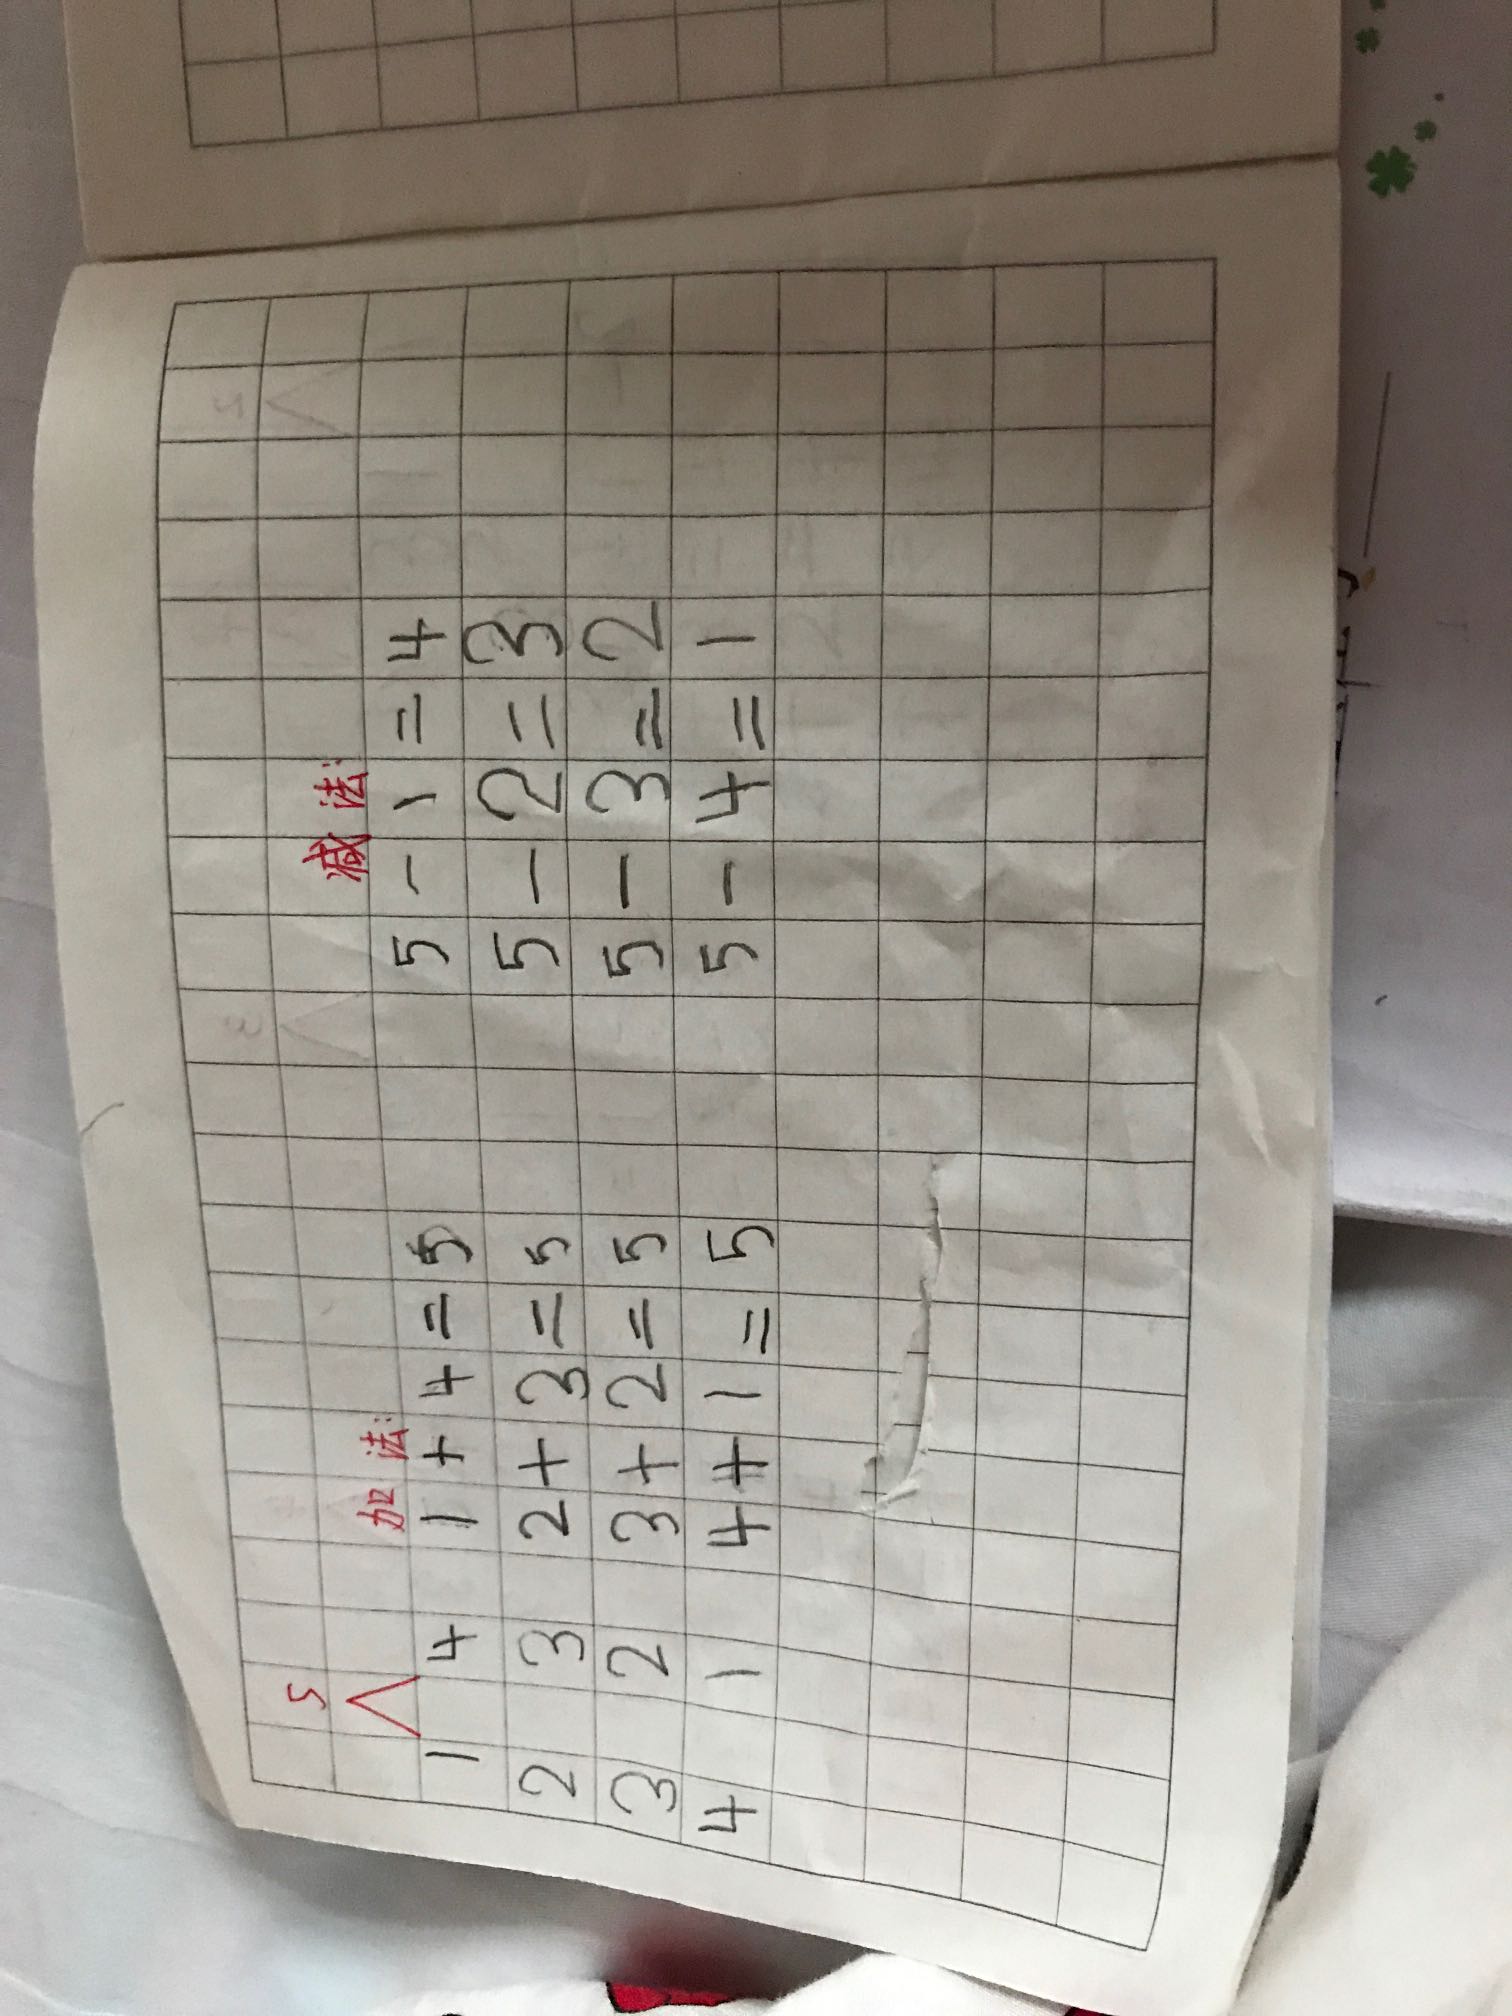 5
加法: 减法:
1 4 1+4=5 5-1=4
2 3 2+3=5 5-2=3
3 2 3+2=5 5-3=2
4 1 4+1=5 5-4=1